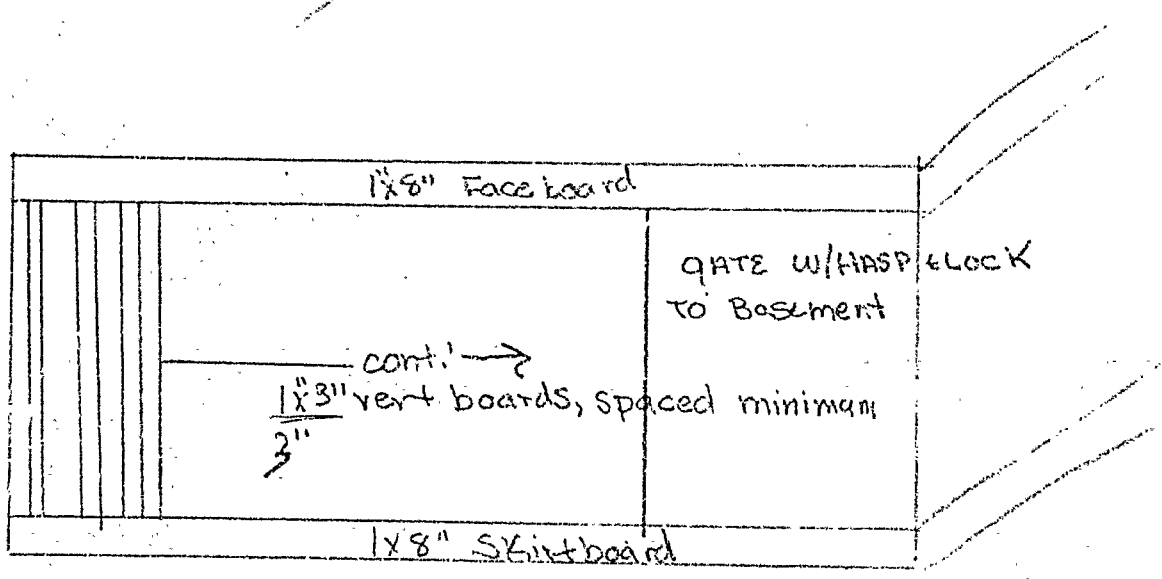 1"x8" Faceboard
GATE W/HASP & LOCK
TO Basement
cont.' →
1"x3" vert boards, spaced minimum
3"
1x8" Skirtboard